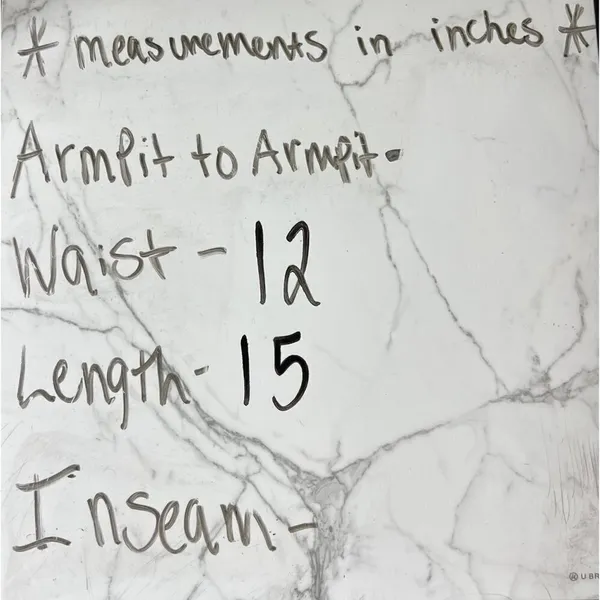 * measurements in inches *
Armpit to Armpit-
Waist - 12
Length- 15
Inseam -
U.BR